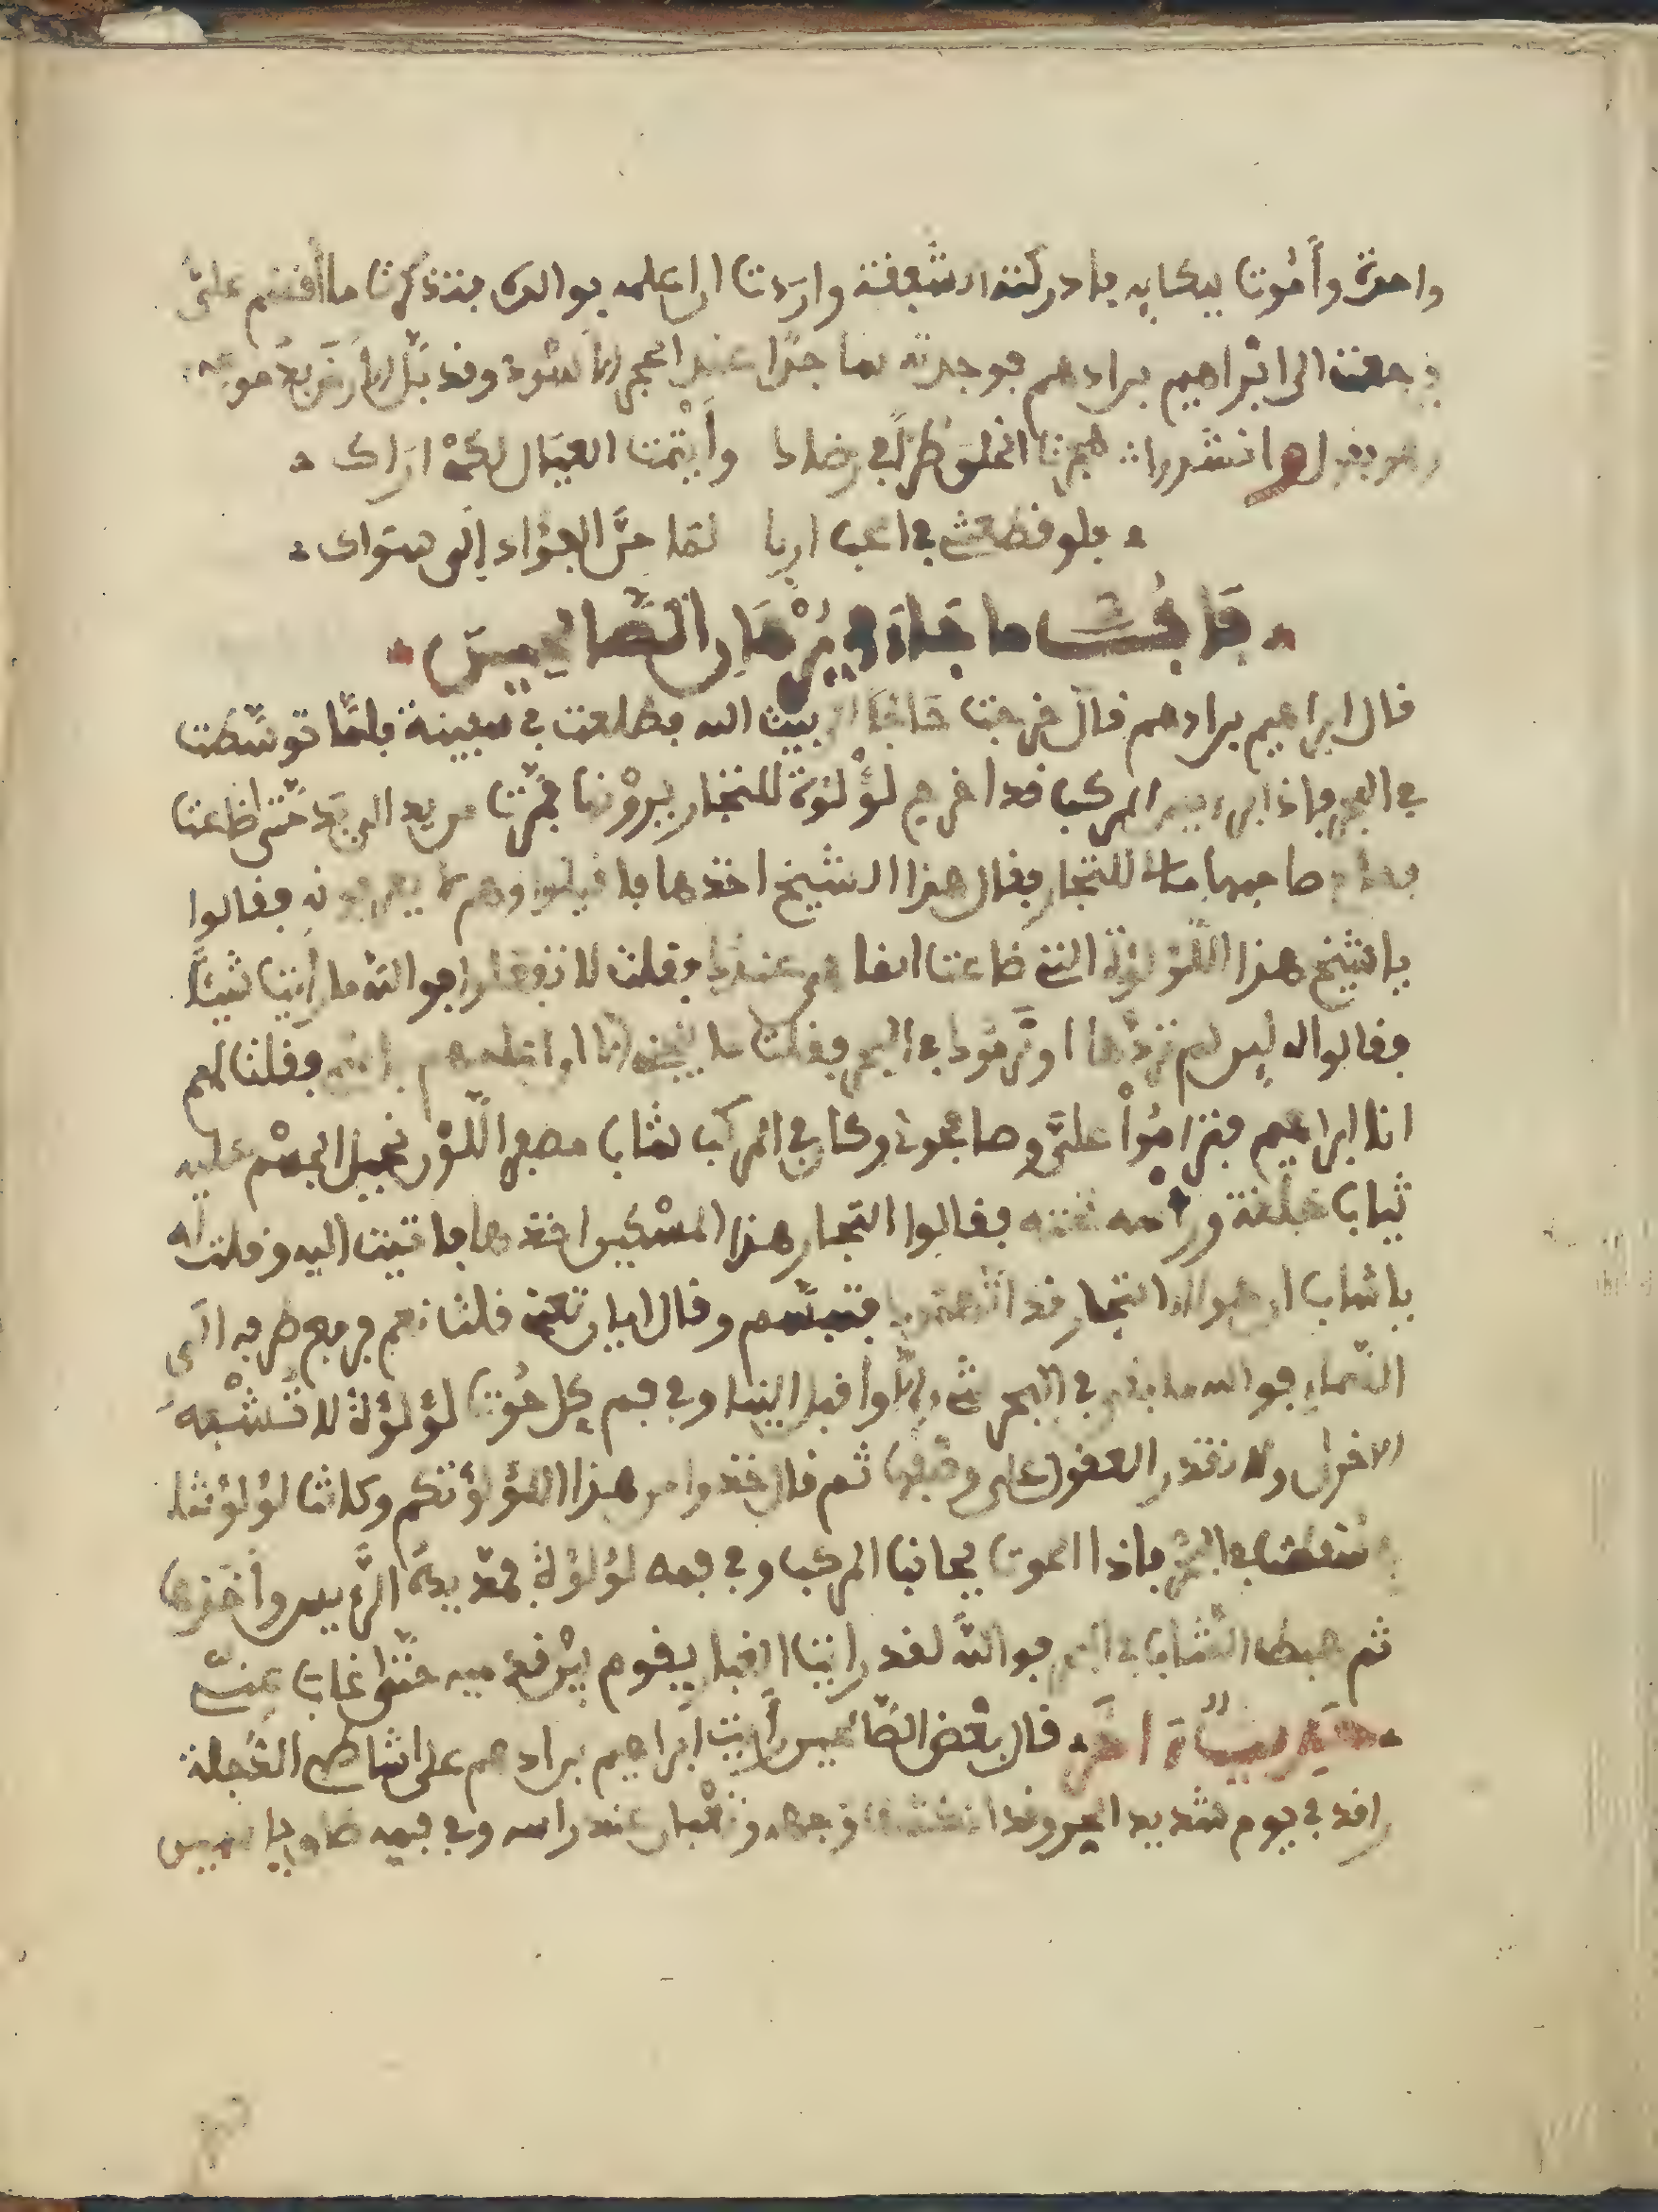 واحدة وأموت ببكايه فادركته الشفقة واردت ان اعلمه بوالده فتذكرت ما أقسم علىّ
فرجعت الى ابراهيم بن ادهم فوجدته ساجدا عند الحجر الاسود وقد بلّ الارض بدموعه
وهو يقول وانشد هجرت الخلق طرّا في رضاك وأيتمت العيال لكي اراك
فلو قطعتني في الحب اربا لما حنّ الفؤاد إلى سواك
باب ما جاء في برهان الصالحين
قال ابراهيم بن ادهم قال خرجت حاجا الى بيت الله فطلعت في سفينة فلمّا توسّطت
في البحر فاذا برييس المركب قد اخرج لؤلؤة للتجار يرونها فمرّت من يد الى يد حتى ضاعت
صاحبها للتجار فقال هذا الشيخ اخذها فاقبلوا وهم لا يعرفونه فقالوا
يا شيخ هذا اللؤلؤة التي ضاعت انها عندك فقلت لا تفعلوا فوالله ما رأيت شيئا
فقالوا له لين لم تردّها او نرموك في البحر فقلت ما ينجيني الا ان اعلمهم فقلت لهم
انا ابراهيم فتراموا علىّ وصافحوني وكان في المركب شاب مصفر اللون نحيل الجسم عليه
ثياب خلقة وراسه فقالوا التجار هذا المسكين اخذها فاتيت اليه وقلت له
يا شاب ان هولاء التجار قد اتهموك فتبسّم وقال ابان تعني قلت نعم فرفع طرفه الى
السّماء فوالله ما بقي في البحر شيء الا واقبل الينا وفي فم كل حوت لؤلؤة لا تشبه
الاخرى ولا تقدر العقول على وصفها ثم قال خذوا من هذا اللؤلؤ لؤلؤتكم وكانت لؤلؤتنا
سقطت في البحر فاذا الحوت بجانب المركب وفي فمه لؤلؤة فمدّ يده الرّييس وأخذها
ثم هبط الشاب في البحر فوالله لقد راينا اقبل يقوم يرفع فيه حتى غاب عنّي
حكاية اخرى قال بعض الصّالحين رأيت ابراهيم بن ادهم على شاطي الدّجلة
راقد في يوم شديد الحر وقد وجهه وثعبان عند راسه وفي فيه طاوية ياسمين